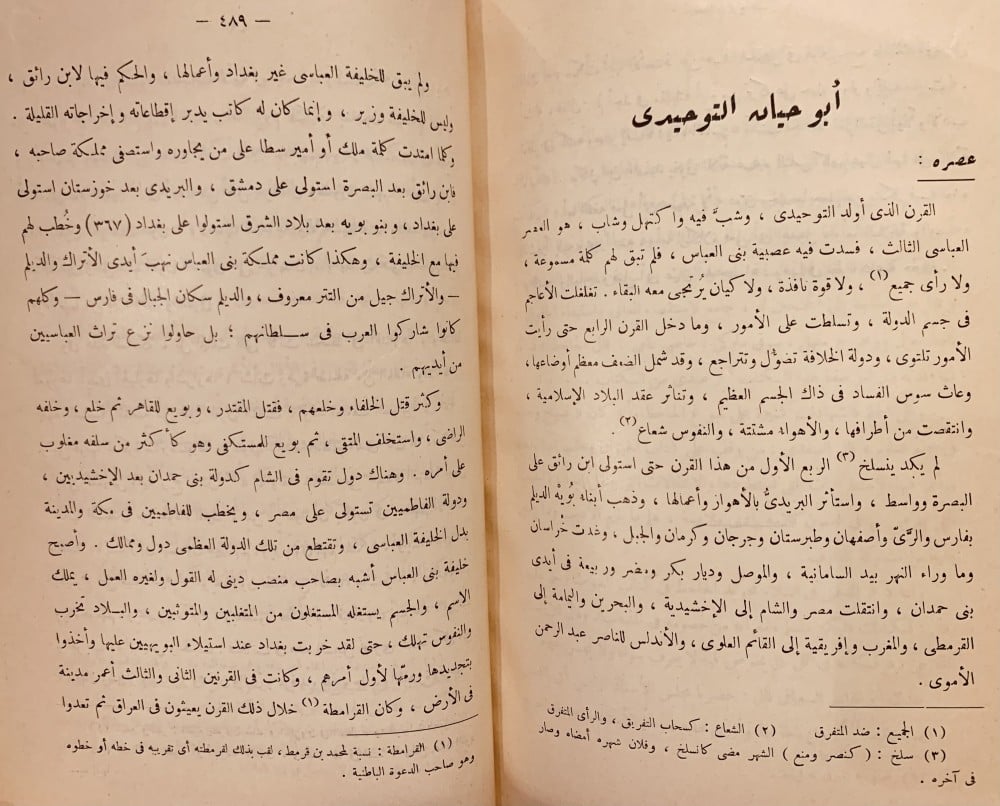 أبو حيان التوحيدى
عصره :
القرن الذى أولد التوحيدى ، وشبَّ فيه واكتهل وشاب ، هو العصر
العباسى الثالث ، فسدت فيه عصبية بنى العباس ، فلم تبق لهم كلمة مسموعة ،
ولا رأى جميع (١) ، ولا قوة نافذة ، ولا كيان يُرتجى معه البقاء . تغلغلت الأعاجم
فى جسم الدولة ، وتسلطت على الأمور ، وما دخل القرن الرابع حتى رأيت
الأمور تلتوى ، ودولة الخلافة تضؤل وتتراجع ، وقد شمل الضعف معظم أوضاعها ،
وعاث سوس الفساد فى ذاك الجسم العظيم ، وتناثر عقد البلاد الإسلامية ،
وانتقصت من أطرافها ، والأهواء مشتتة ، والنفوس شعاع (٢) .
لم يكد ينسلخ (٣) الربع الأول من هذا القرن حتى استولى ابن رائق على
البصرة وواسط ، واستأثر البريدىُّ بالأهواز وأعمالها ، وذهب أبناء بُويْه الديلم
بفارس والرَّىّ وأصفهان وطبرستان وجرجان وكرمان والجبل ، وغدت خُراسان
وما وراء النهر بيد السامانية ، والموصل وديار بكر ومضر وربيعة فى أيدى
بنى حمدان ، وانتقلت مصر والشام إلى الإخشيدية ، والبحرين واليمامة إلى
القرمطى ، والمغرب وإفريقية إلى القائم العلوى ، والأندلس للناصر عبد الرحمن
الأموى .
(١) الجميع : ضد المتفرق (٢) الشعاع : كسحاب التفريق ، والرأى المتفرق
(٣) سلخ : ( كنصر ومنع ) الشهر مضى كانسلخ ، وفلان شهره أمضاه وصار
فى آخره .
— ٤٨٩ —
ولم يبق للخليفة العباسى غير بغداد وأعمالها ، والحكم فيها لابن رائق ،
وليس للخليفة وزير ، وإنما كان له كاتب يدبر إقطاعاته وإخراجاته القليلة .
وكلما امتدت كلمة ملك أو أمير سطا على من يجاوره واستصفى مملكة صاحبه ،
فابن رائق بعد البصرة استولى على دمشق ، والبريدى بعد خوزستان استولى
على بغداد ، وبنو بويه بعد بلاد الشرق استولوا على بغداد (٣٦٧) وخُطب لهم
فيها مع الخليفة ، وهكذا كانت مملكة بنى العباس نهبَ أيدى الأتراك والديلم
— والأتراك جيل من التتر معروف ، والديلم سكان الجبال فى فارس — وكلهم
كانوا شاركوا العرب فى سـلطانهم ؛ بل حاولوا نزع تراث العباسيين
من أيديهم .
وكثر قتل الخلفاء وخلعهم ، فقتل المقتدر ، وبويع للقاهر ثم خلع ، وخلفه
الراضى ، واستخلف المتقى ، ثم بويع للمستكفى وهو كأكثر من سلفه مغلوب
على أمره . وهناك دول تقوم فى الشام كدولة بنى حمدان بعد الإخشيديين ،
ودولة الفاطميين تستولى على مصر ، ويخطب للفاطميين فى مكة والمدينة
بدل الخليفة العباسى ، وتقتطع من تلك الدولة العظمى دول وممالك . وأصبح
خليفة بنى العباس أشبه بصاحب منصب دينى له القول ولغيره العمل ، يملك
الاسم ، والجسم يستغله المستغلون من المتغلبين والمتوثبين ، والبـلاد تخرب
والنفوس تهلك ، حتى لقد خربت بغداد عند استيلاء البويهيين عليها وأخذوا
بتجديدها ورمّها لأول أمرهم ، وكانت فى القرنين الثانى والثالث أعمر مدينة
فى الأرض ، وكان القرامطة (١) خلال ذلك القرن يعيثون فى العراق ثم تعدوا
(١) القرامطة : نسبة لمحمد بن قرمط ، لقب بذلك لقرمطته أى تقريبه فى خطه أو خطوه
وهو صاحب الدعوة الباطنية .